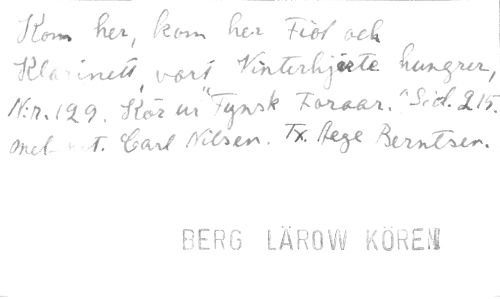 Kom her, kom her Fiol och
Klarinett, vort Vinterhjerte hungrer,
N:r. 129. Kör ur "Fynsk Foraar." Sid. 215.
mel. Carl Nilsen. Tx. Aege Berntsen.
BERG LÄROW KÖREN